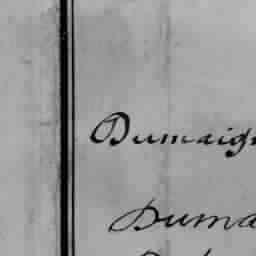 Dumaign
Duma